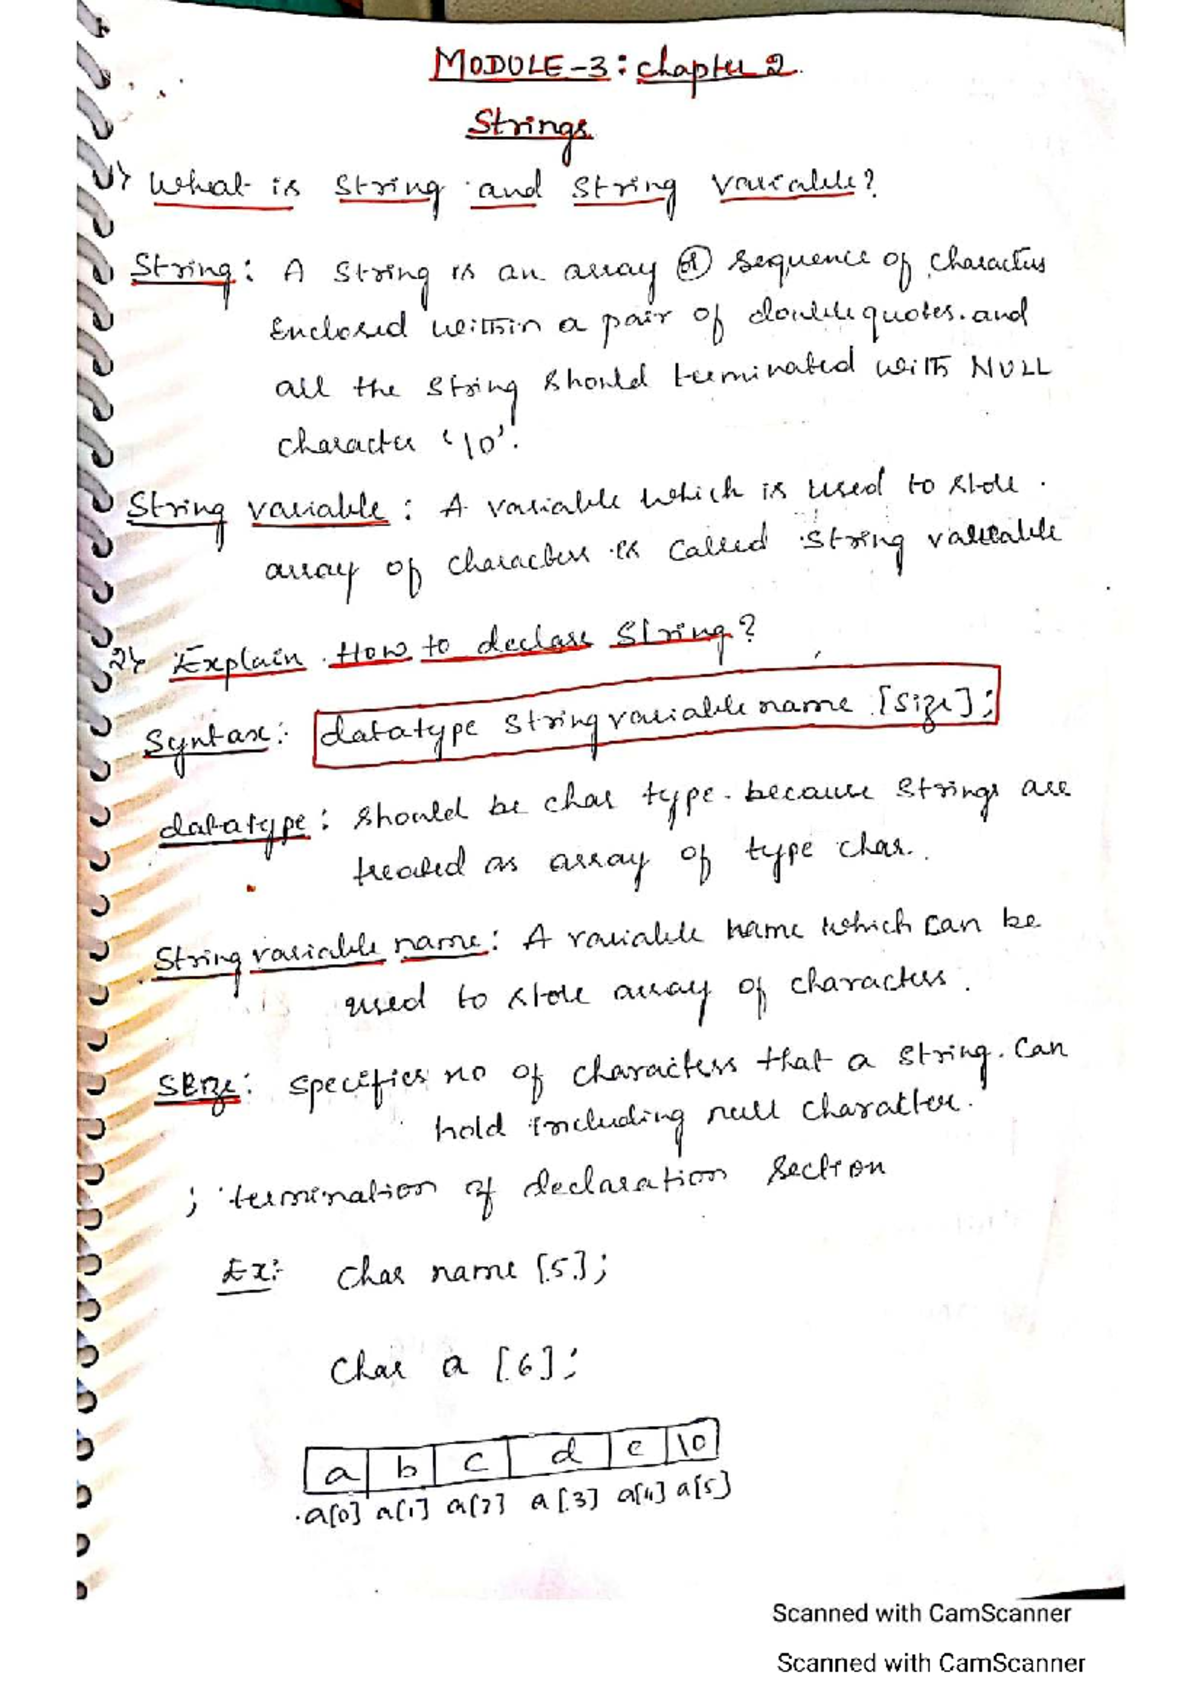 MODULE-3: chapter 2
Strings
1) What is string and string variable?
String: A string is an array or sequence of characters
Enclosed within a pair of double quotes. and
all the string should terminated with NULL
character '\0'.
String variable: A variable which is used to store
array of characters is called string variable
2) Explain How to declare string?
Syntax: datatype string variable name [size];
datatype: should be char type. because strings are
treated as array of type char.
String variable name: A variable name which can be
used to store array of characters.
Size: specifies no of characters that a string can
hold including null character.
; termination of declaration section
Ex:- char name [5];
char a [6];
a b c d e \0
a[0] a[1] a[2] a[3] a[4] a[5]
Scanned with CamScanner
Scanned with CamScanner